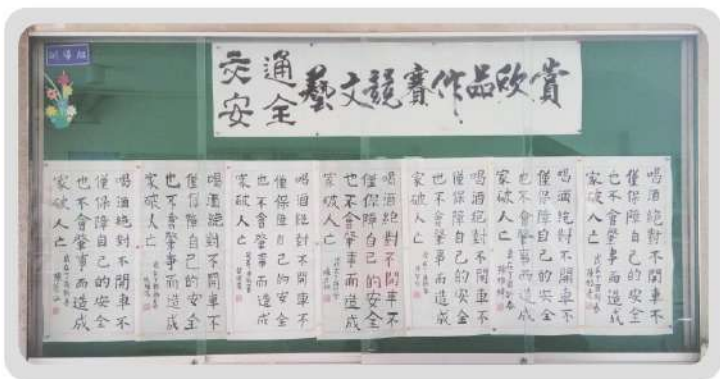 訓導組
交通
安全
藝文競賽作品欣賞
喝酒絕對不開車不
僅保障自己的安全
也不會肇事而造成
家破人亡
喝酒絕對不開車不
僅保障自己的安全
也不會肇事而造成
家破人亡
喝酒絕對不開車不
僅保障自己的安全
也不會肇事而造成
家破人亡
喝酒絕對不開車不
僅保障自己的安全
也不會肇事而造成
家破人亡
喝酒絕對不開車不
僅保障自己的安全
也不會肇事而造成
家破人亡
喝酒絕對不開車不
僅保障自己的安全
也不會肇事而造成
家破人亡
喝酒絕對不開車不
僅保障自己的安全
也不會肇事而造成
家破人亡